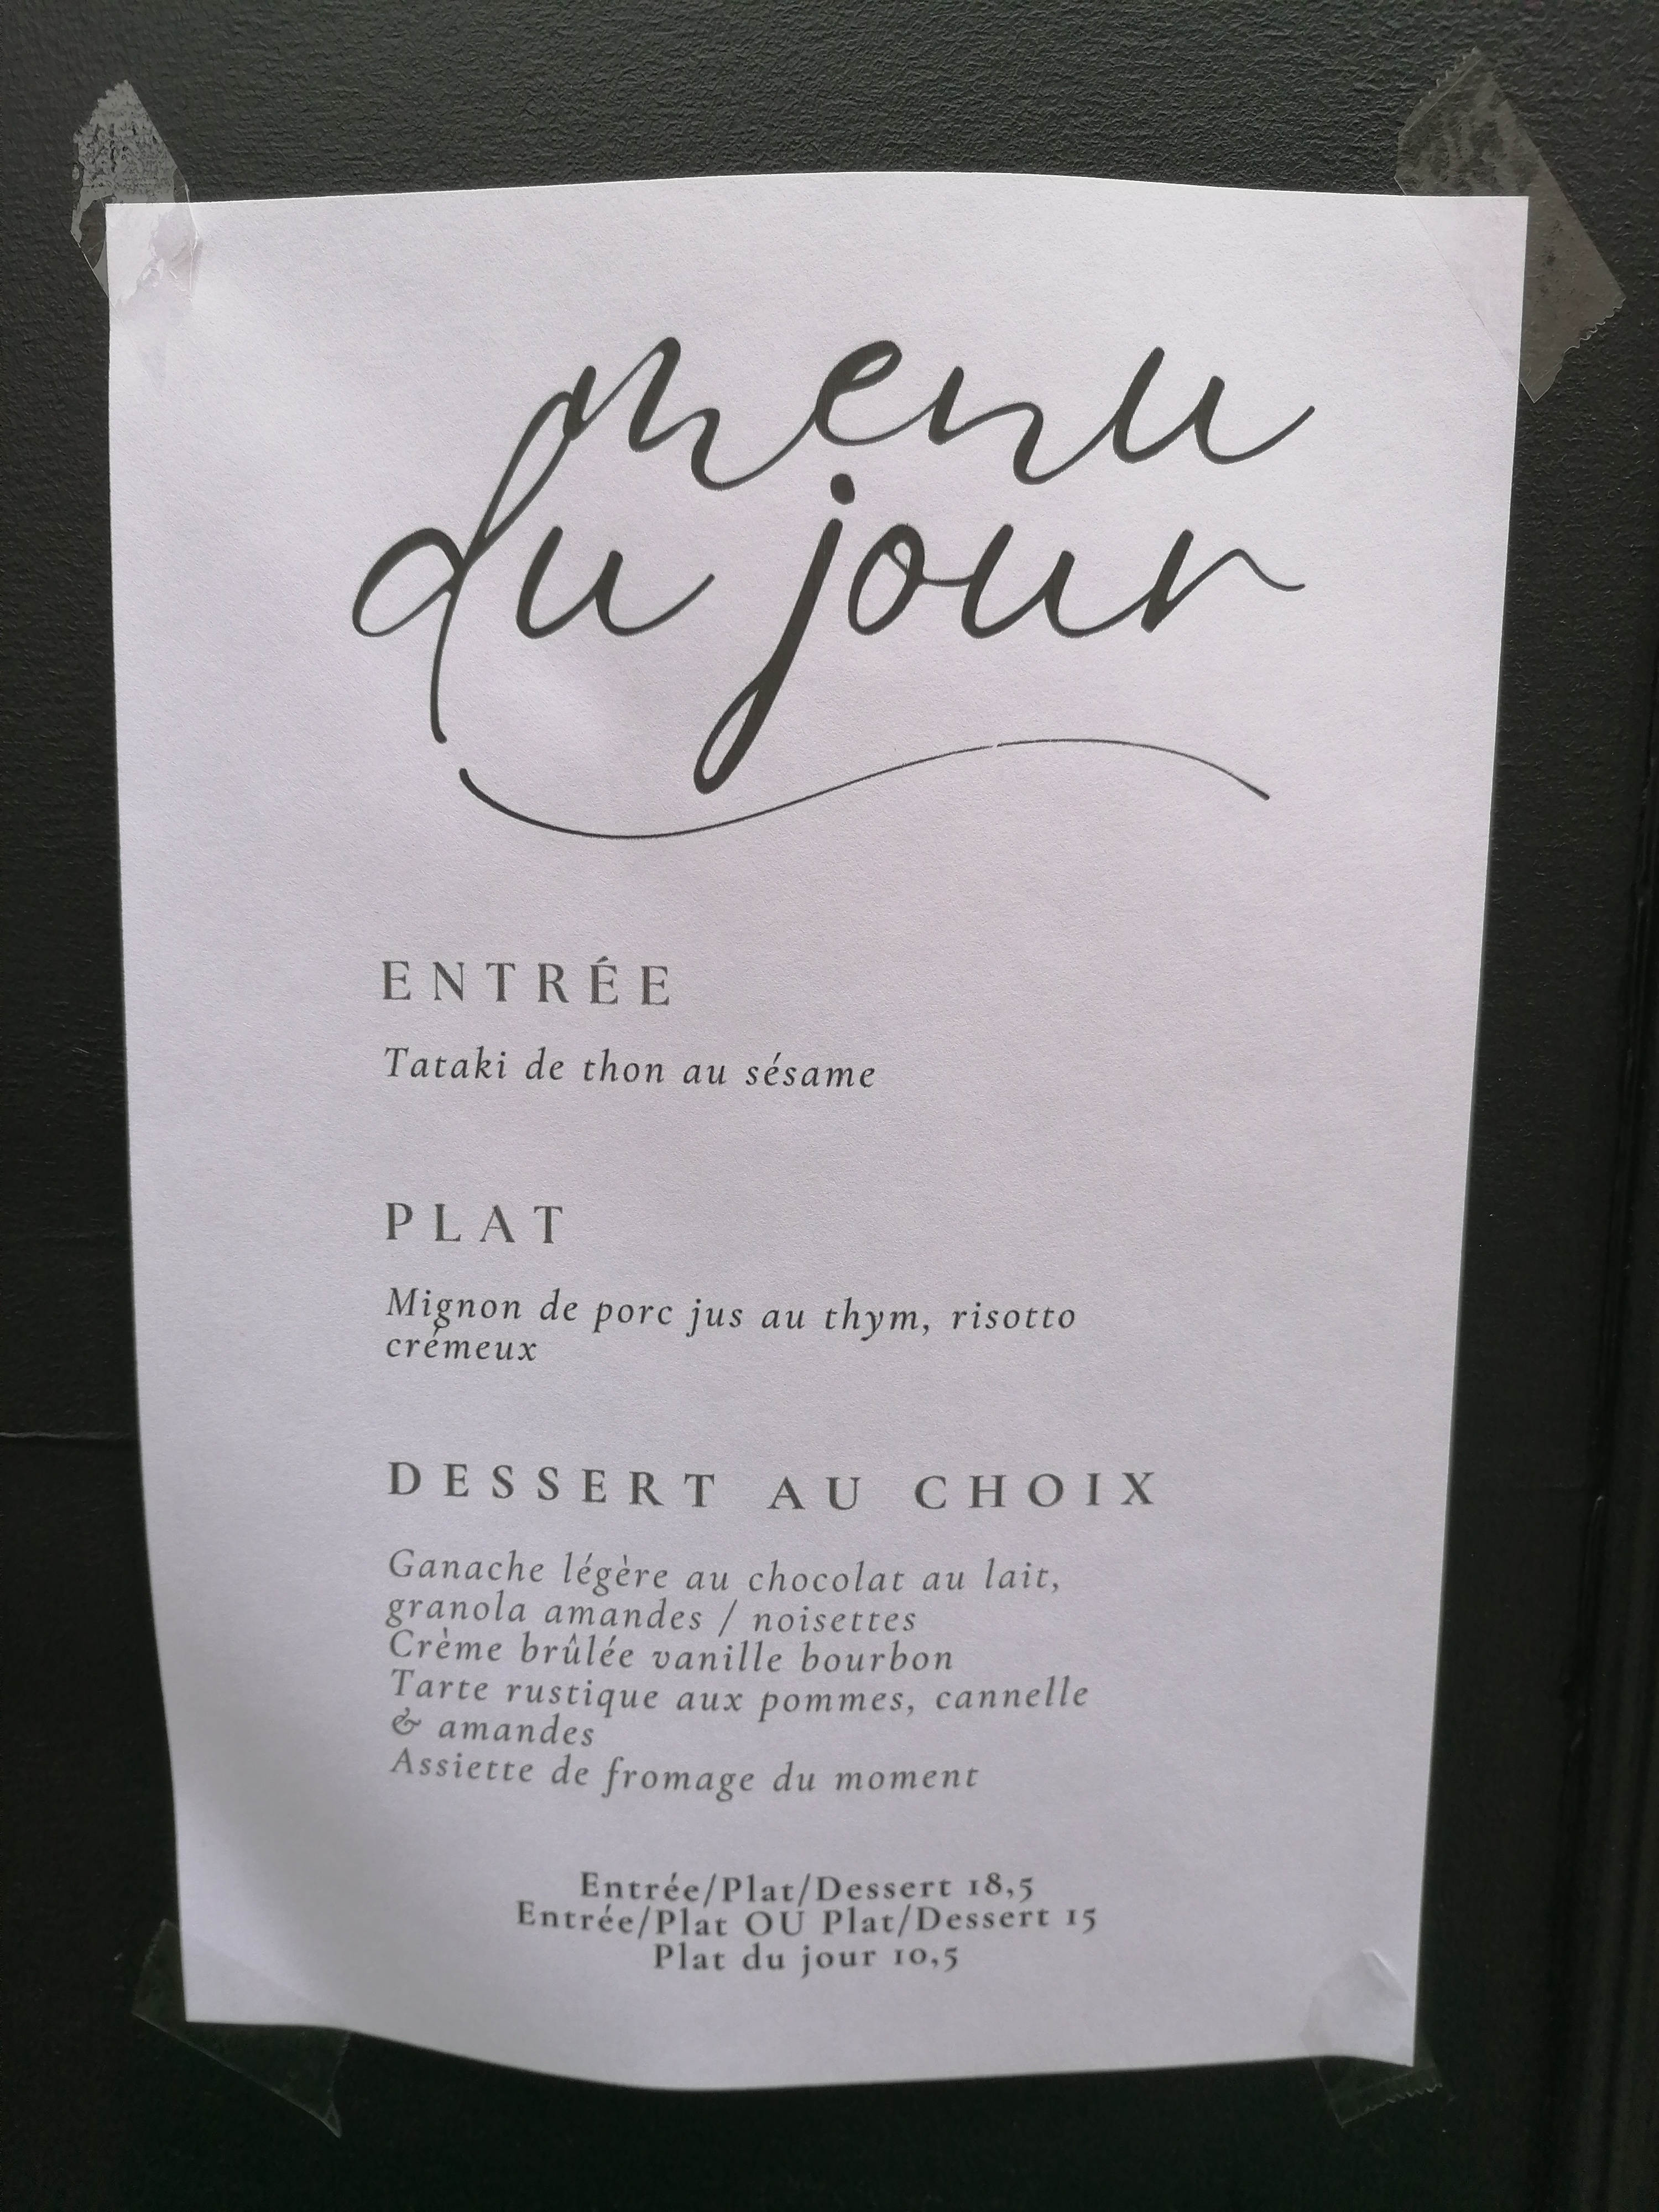 menu
du jour
ENTRÉE
Tataki de thon au sésame
PLAT
Mignon de porc jus au thym, risotto
crémeux
DESSERT AU CHOIX
Ganache légère au chocolat au lait,
granola amandes / noisettes
Crème brûlée vanille bourbon
Tarte rustique aux pommes, cannelle
& amandes
Assiette de fromage du moment
Entrée/Plat/Dessert 18,5
Entrée/Plat OU Plat/Dessert 15
Plat du jour 10,5